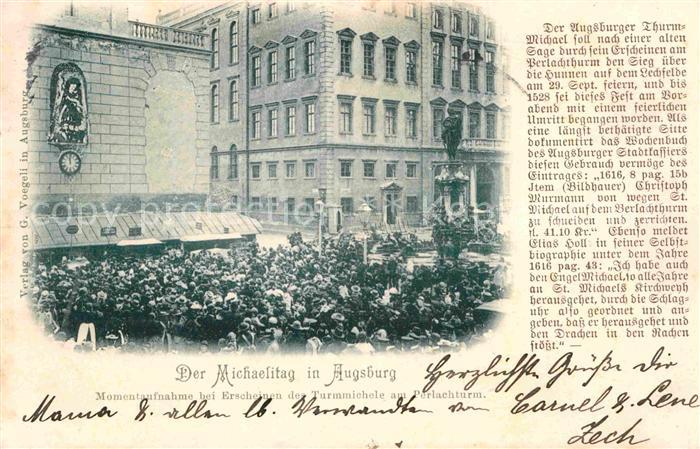 Verlag von G. Voegeli in Augsburg
Der Augsburger Thurm-
Michael soll nach einer alten
Sage durch sein Erscheinen am
Perlachthurm den Sieg über
die Hunnen auf dem Lechfelde
am 29. Sept. feiern, und bis
1528 sei dieses Fest am Vor-
abend mit einem feierlichen
Umritt begangen worden. Als
eine längst bethätigte Sitte
dokumentirt das Wochenbuch
des Augsburger Stadtkassiers
diesen Gebrauch vermöge des
Eintrages: „1616, 8 pag. 15b
Item (Bildhauer) Christoph
Murmann von wegen St.
Michael auf dem Perlachthurm
zu schneiden und zerrichten.
fl. 41.10 Kr." Ebenso meldet
Elias Holl in seiner Selbst-
biographie unter dem Jahre
1616 pag. 43: „Ich habe auch
den Engel Michael, so alle Jahre
an St. Michaels Kirchweyh
herausgehet, durch die Schlag-
uhr also geordnet und an-
geben, daß er herausgehet und
den Drachen in den Rachen
stößt." —
Der Michaelitag in Augsburg
Momentaufnahme bei Erscheinen des Turmmichele am Perlachturm.
Herzlichste Grüße Dir
Mama & allen lb. Verwandten von Carnel & Lene
Zech